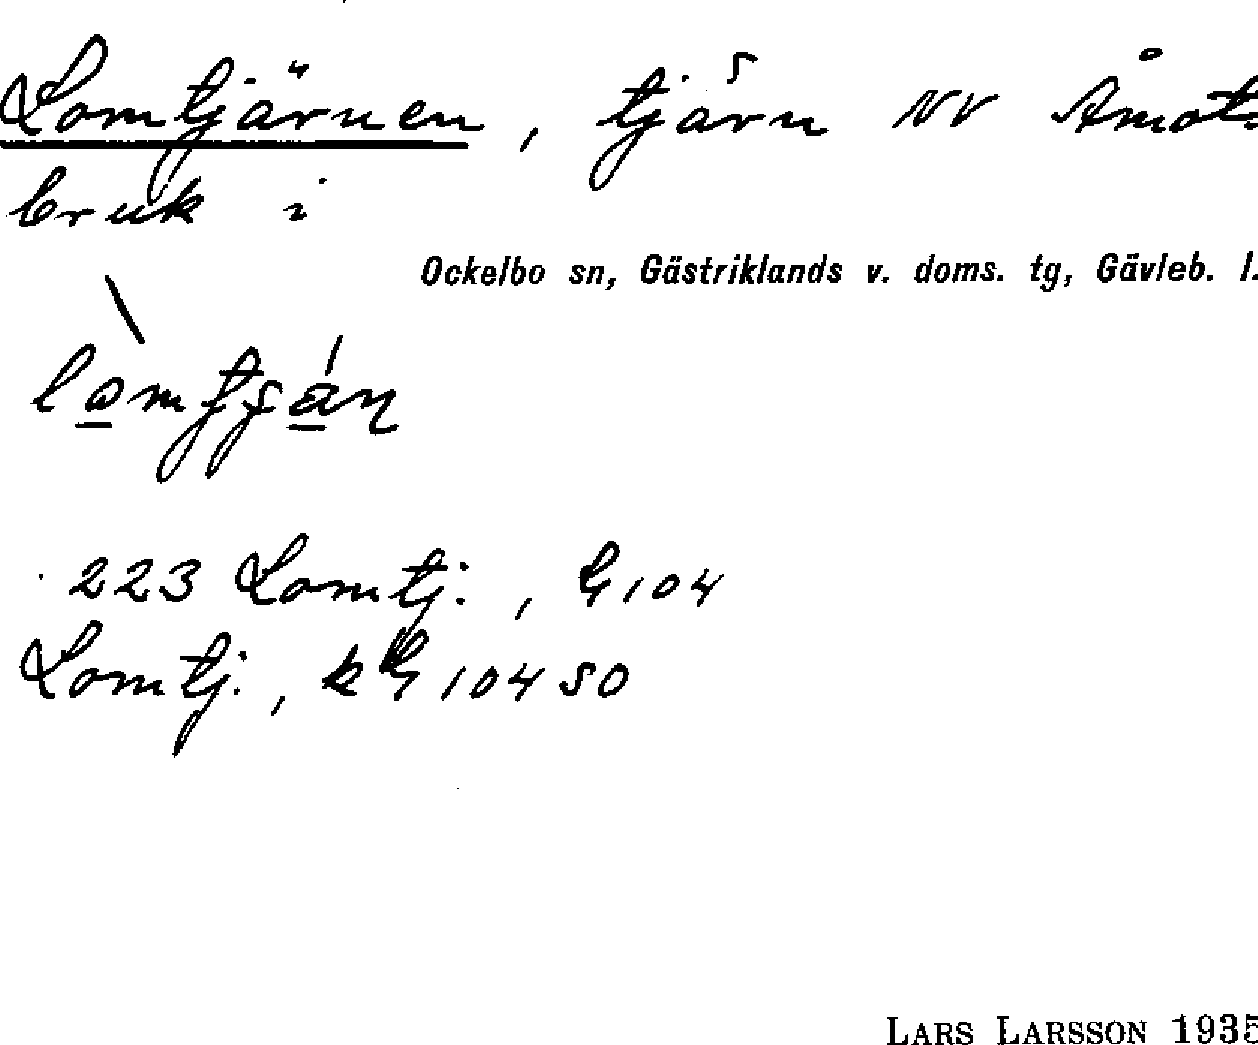 Lomtjärnen, tjärn NV Åmots
bruk i
Ockelbo sn, Gästriklands v. doms. tg, Gävleb. l.
223 Lomtj:, G 104
Lomtj:, kG 104 SO
LARS LARSSON 1935